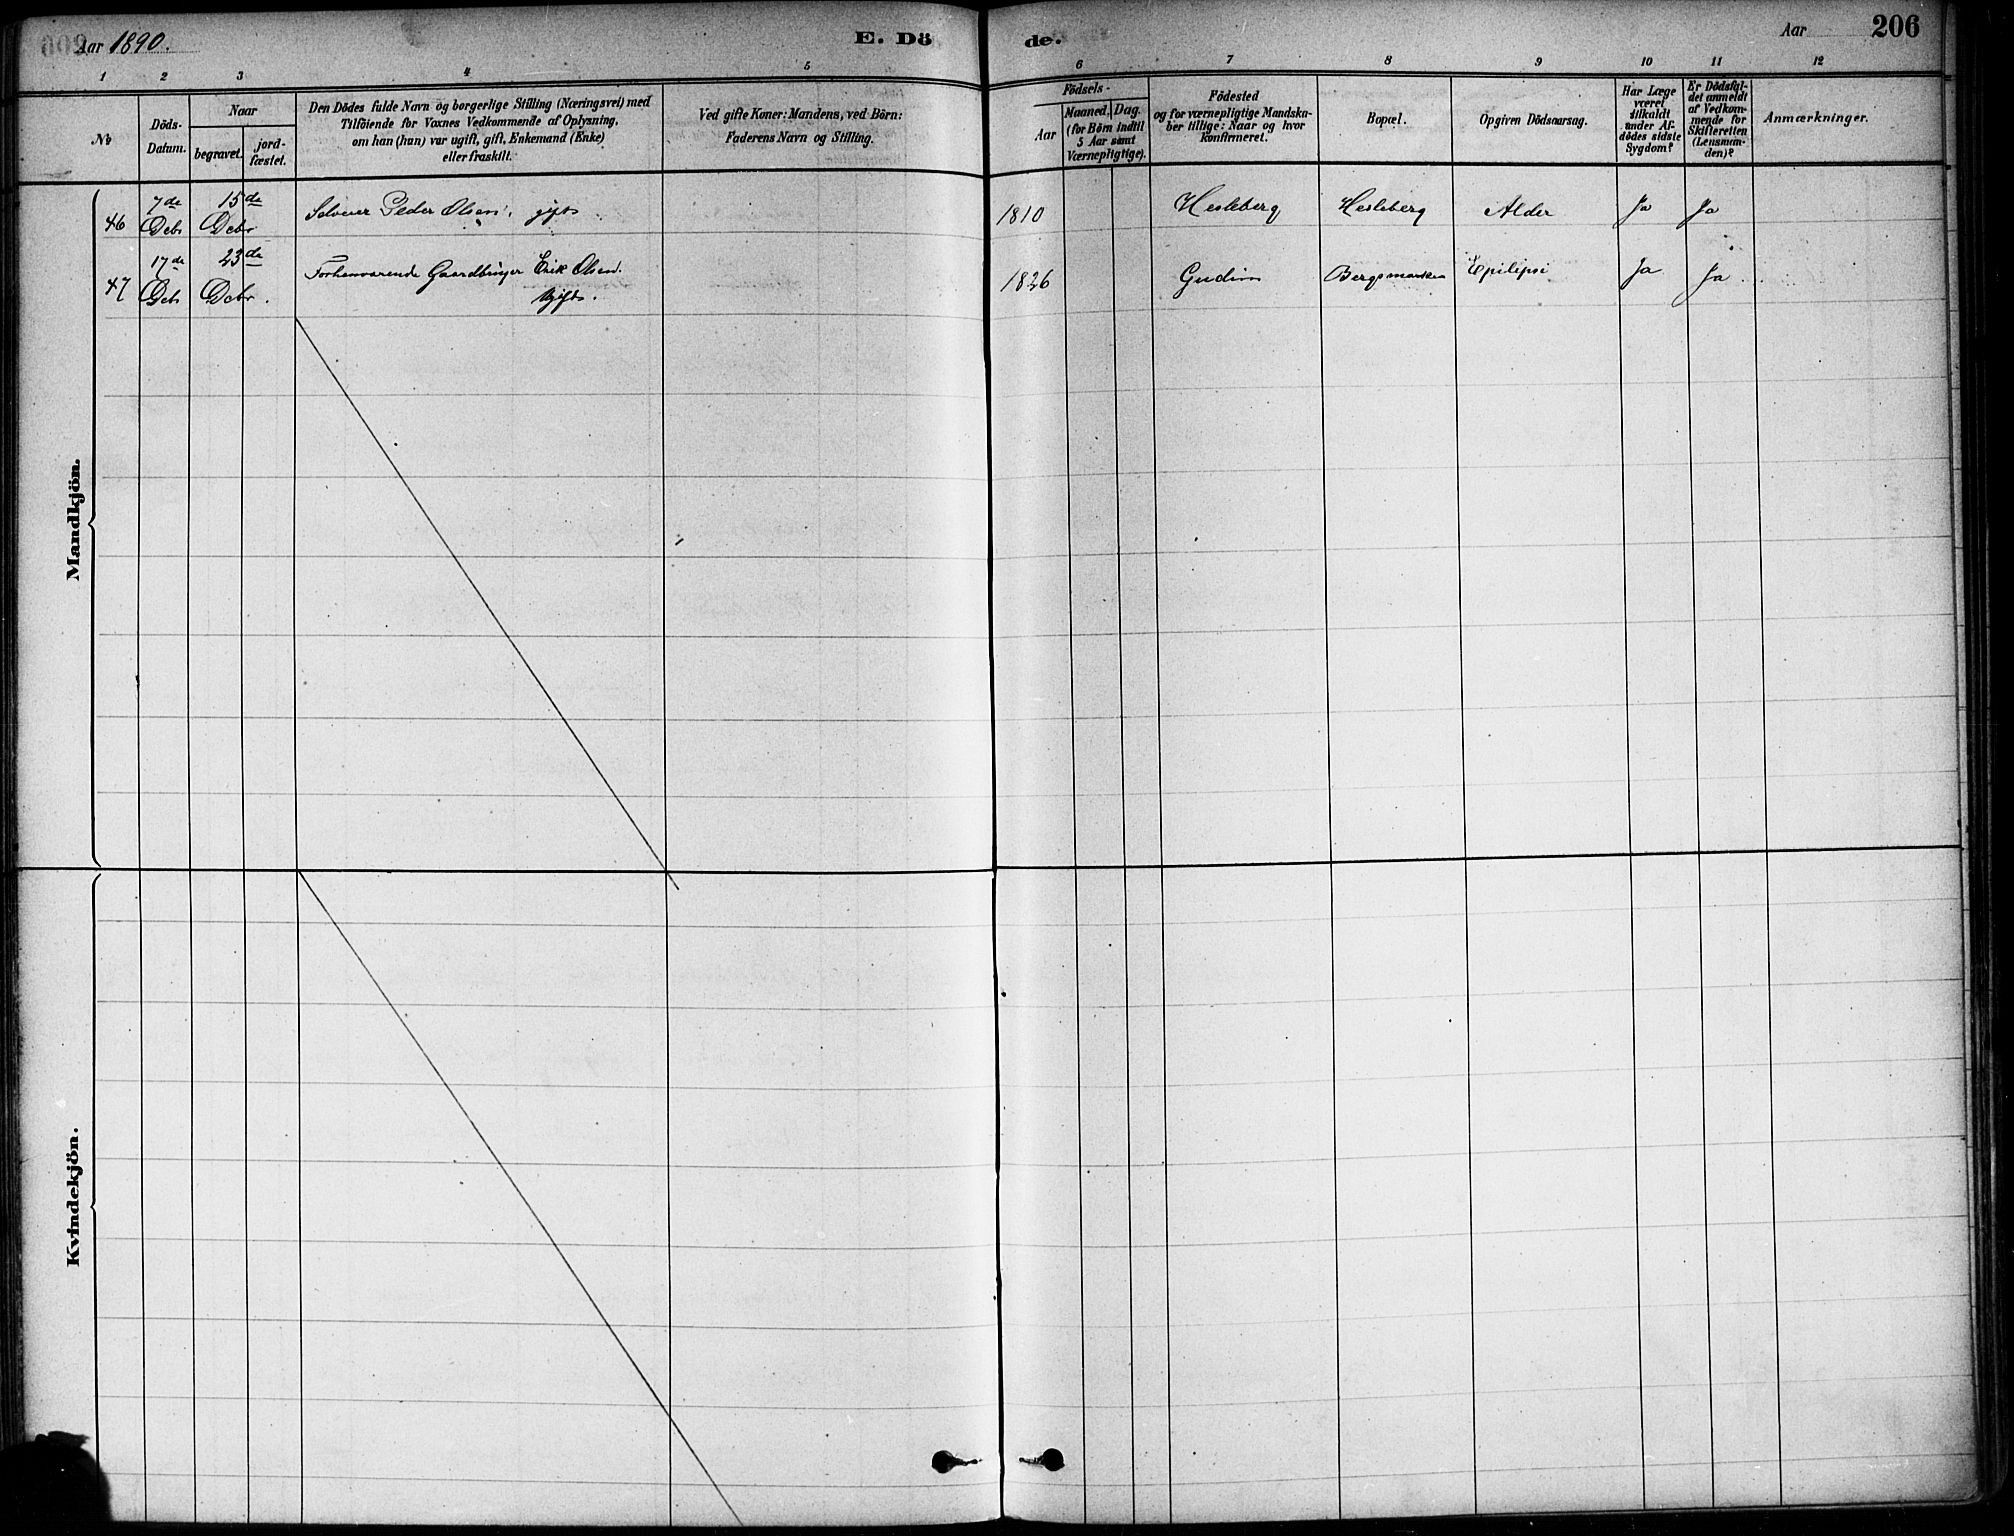 Aar 1890.
E. Dö
de.
Aar
206
1 2 3 4 5 6 7 8 9 10 11 12
No
Döds-
Datum.
Naar
begravet.
jord-
fæstet.
Den Dödes fulde Navn og borgerlige Stilling (Næringsvei) med
Tilföiende for Voxnes Vedkommende af Oplysning,
om han (hun) var ugift, gift, Enkemand (Enke)
eller fraskilt.
Ved gifte Koner: Mandens, ved Börn:
Faderens Navn og Stilling.
Födsels-
Aar
Maaned.
Dag.
(for Börn indtil
5 Aar samt
Værnepligtige).
Födested
og for værnepligtige Mandska-
ber tillige: Naar og hvor
konfirmeret.
Bopæl.
Opgiven Dödsaarsag.
Har Læge
været
tilkaldt
under Af-
dödes sidste
Sygdom?
Er Dödsfal-
det anmeldt
af Vedkom-
mende for
Skifteretten
(Lensman-
den)?
Anmærkninger.
Mandkjön.
46 7de Debr 15de Debr Selveier Peder Olsen, gift 1810 Hesleberg Hesleberg Alder Ja Ja
47 17de Debr 23de Debr. Forhenværende Gaardbruger Erik Olsen. 1826 Gudim Bergsmarken Epilepsi Ja Ja
Ugift.
Kvindekjön.